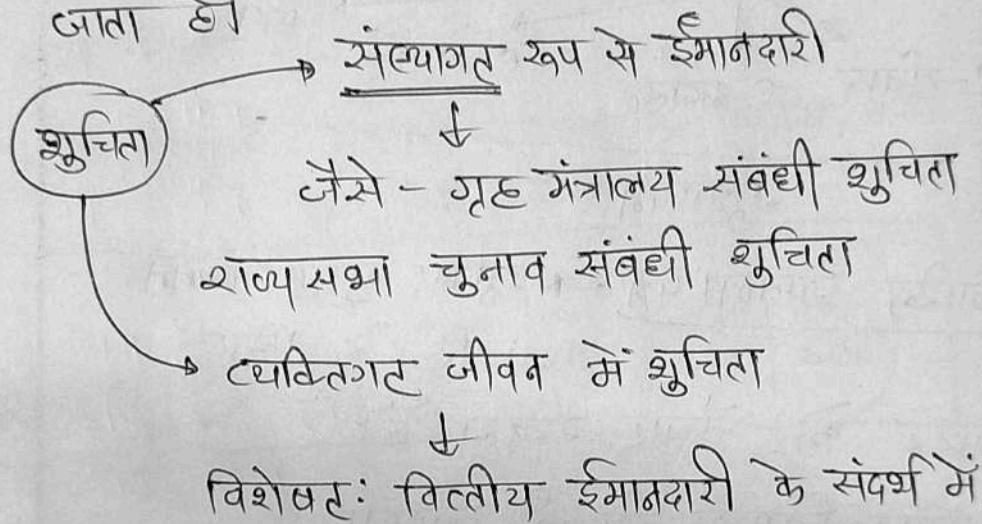 जाता है।
संस्थागत रूप से ईमानदारी
शुचिता
जैसे - गृह मंत्रालय संबंधी शुचिता
राज्यसभा चुनाव संबंधी शुचिता
व्यक्तिगत जीवन में शुचिता
विशेषत: वित्तीय ईमानदारी के संदर्भ में